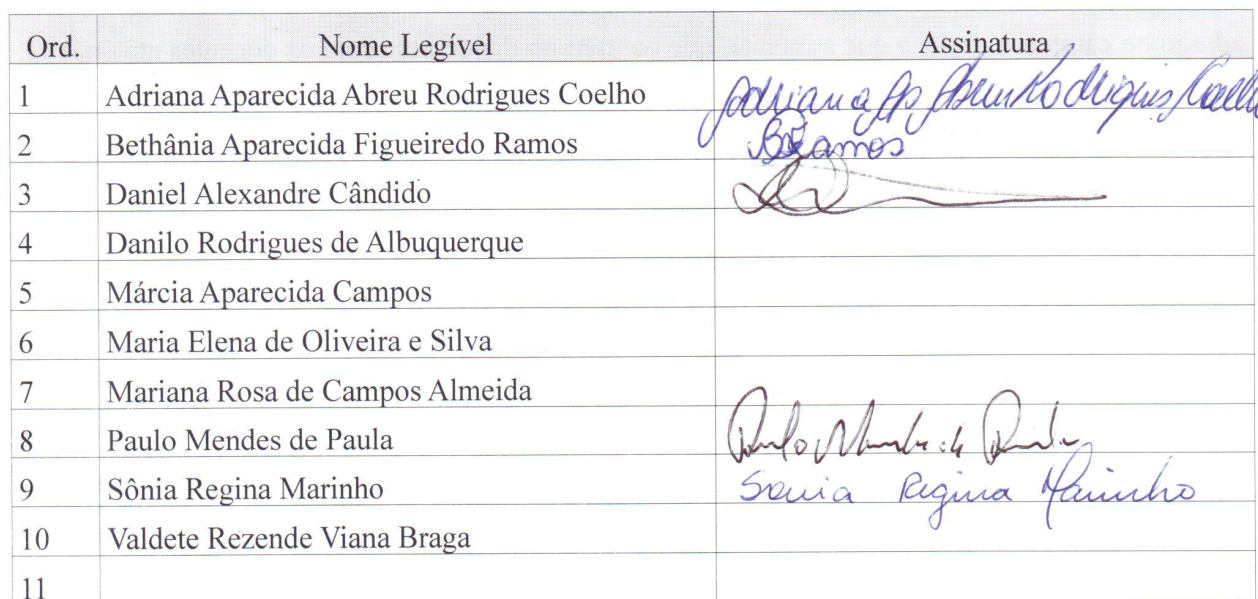 Ord. Nome Legível Assinatura
1 Adriana Aparecida Abreu Rodrigues Coelho Adriana Ap Abreu Rodrigues Coelho
2 Bethânia Aparecida Figueiredo Ramos BRamos
3 Daniel Alexandre Cândido
4 Danilo Rodrigues de Albuquerque
5 Márcia Aparecida Campos
6 Maria Elena de Oliveira e Silva
7 Mariana Rosa de Campos Almeida
8 Paulo Mendes de Paula Paulo Mendes de Paula
9 Sônia Regina Marinho Sonia Regina Marinho
10 Valdete Rezende Viana Braga
11